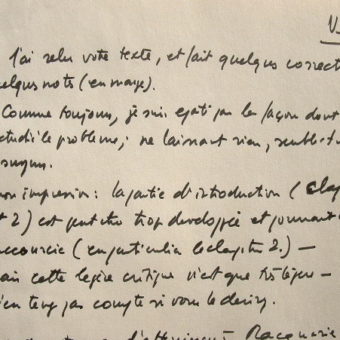 V
J'ai relu votre texte, et fait quelques correct
quelques notes (en marge).
Comme toujours, je suis épaté par la façon dont
étudié le problème; ne laissant rien, semble-t-
mon impression: la partie d'introduction (chap
et 2) est peut être trop développée et pourrait
raccourcie (en particulier le chapitre 2.) —
mais cette légère critique n'est que très légère —
n'en tenez pas compte si vous le désirez.